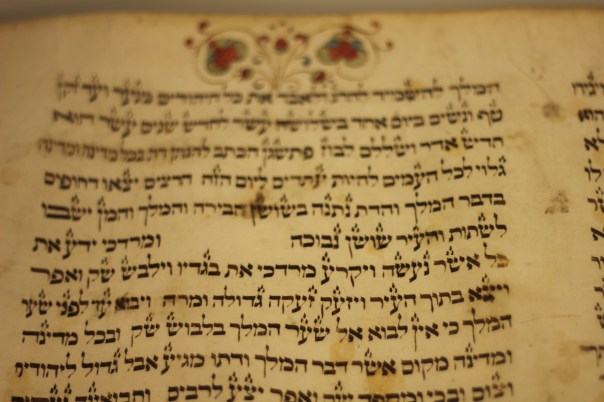 המלך להשמיד להרג ולאבד את כל היהודים מנער ועד זקן
טף ונשים ביום אחד בשלושה עשר לחדש שנים עשר הוא
חדש אדר ושללם לבוז פתשגן הכתב להנתן דת בכל מדינה ומדינה
גלוי לכל העמים להיות עתדים ליום הזה הרצים יצאו דחופים
בדבר המלך והדת נתנה בשושן הבירה והמלך והמן ישבו
לשתות והעיר שושן נבוכה ומרדכי ידע את
כל אשר נעשה ויקרע מרדכי את בגדיו וילבש שק ואפר
ויצא בתוך העיר ויזעק זעקה גדולה ומרה ויבוא עד לפני שער
המלך כי אין לבוא אל שער המלך בלבוש שק ובכל מדינה
ומדינה מקום אשר דבר המלך ודתו מגיע אבל גדול ליהודים
וצום ובכי ומספד שק ואפר יצע לרבים